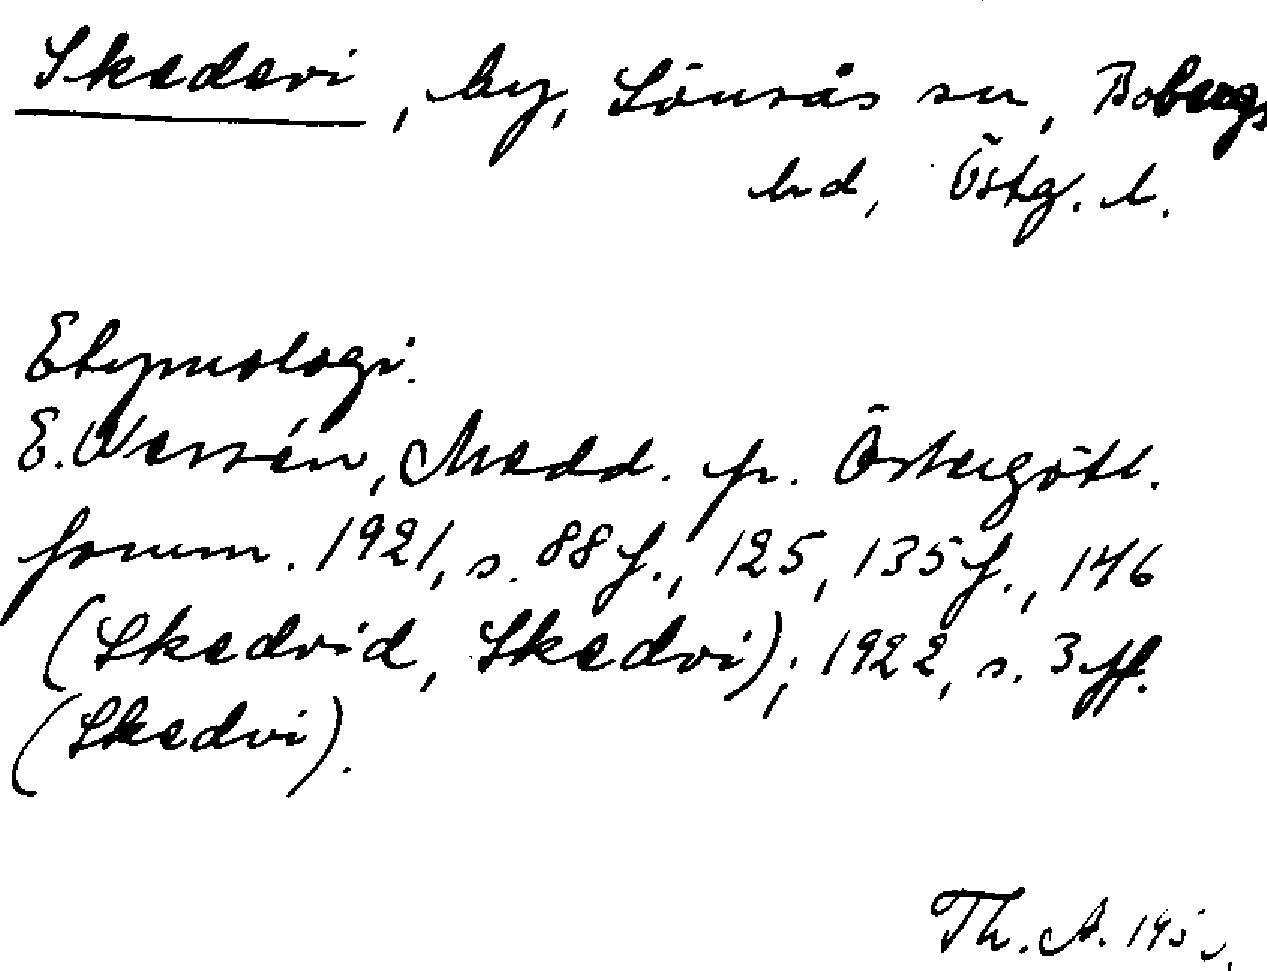 Skedevi, by, Lönsås sn, Bobergs
hd, Östg. l.
Etymologi.
E. Wessén, Medd. fr. Östergötl.
fornm. 1921, s. 88 f., 125, 135 f., 146
(Skedvid, Skedvi); 1922, s. 3 ff.
(Skedvi).
Th. A.